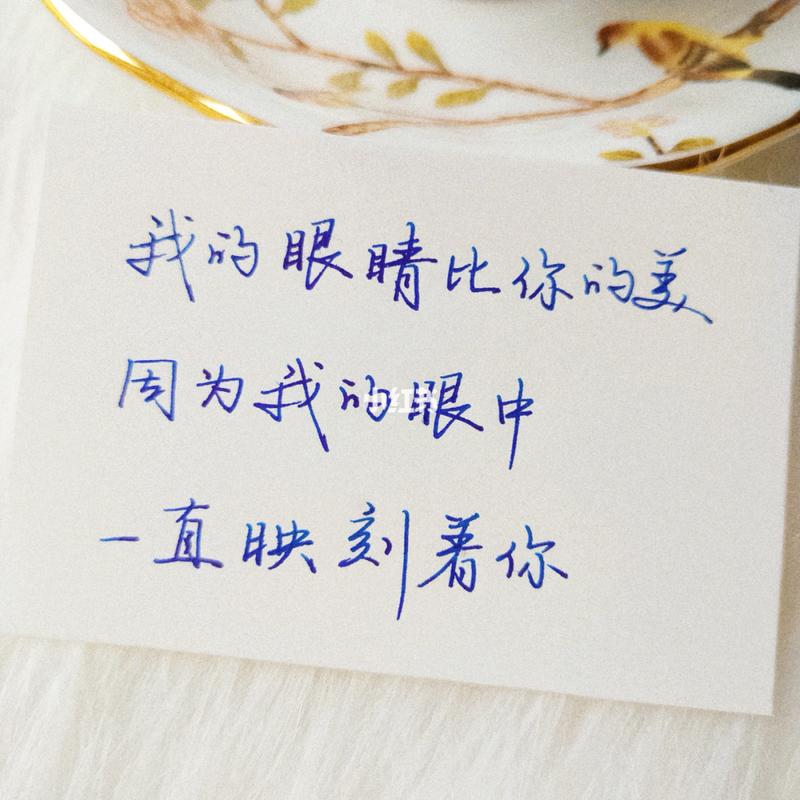 我的眼睛比你的美
因为我的眼中
一直映刻着你
小红书